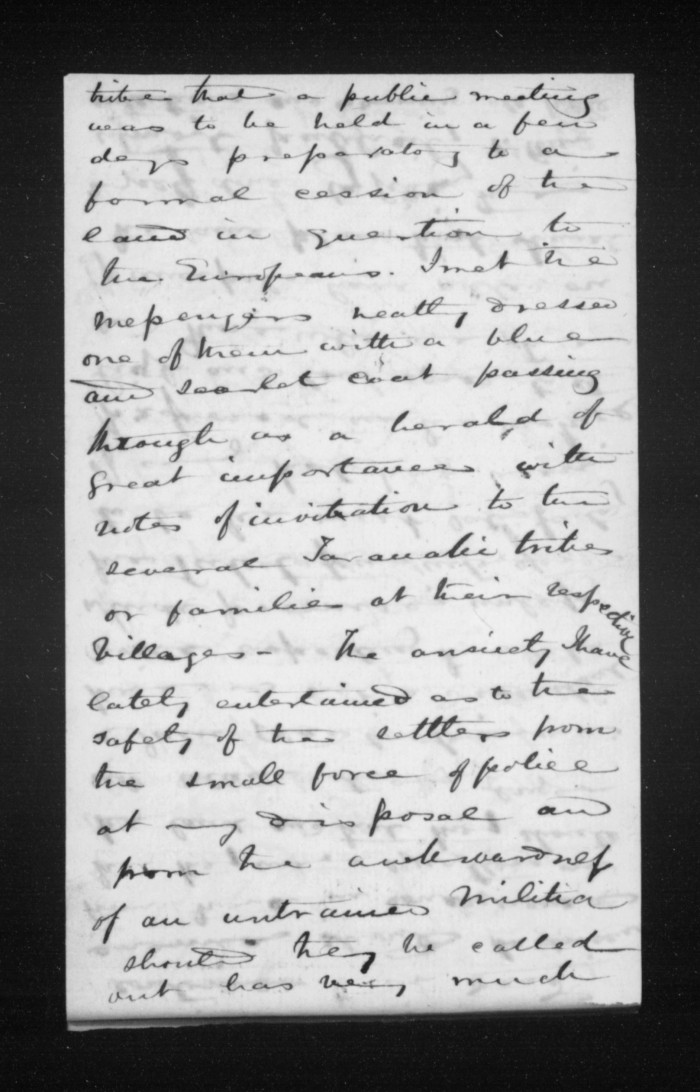 tribe that a public meeting
was to be held in a few
days preparatory to a
formal cession of the
land in question to
the Europeans. I met the
messengers neatly dressed
one of them with a blue
and scarlet coat passing
through as a herald of
great importance with
notes of invitation to the
several Taranaki tribes
or families at their respective
Villages - The anxiety I have
lately entertained as to the
safety of the settlers from
the small force of police
at my disposal and
from the awkwardness
of an untrained Militia
should they be called
out has very much